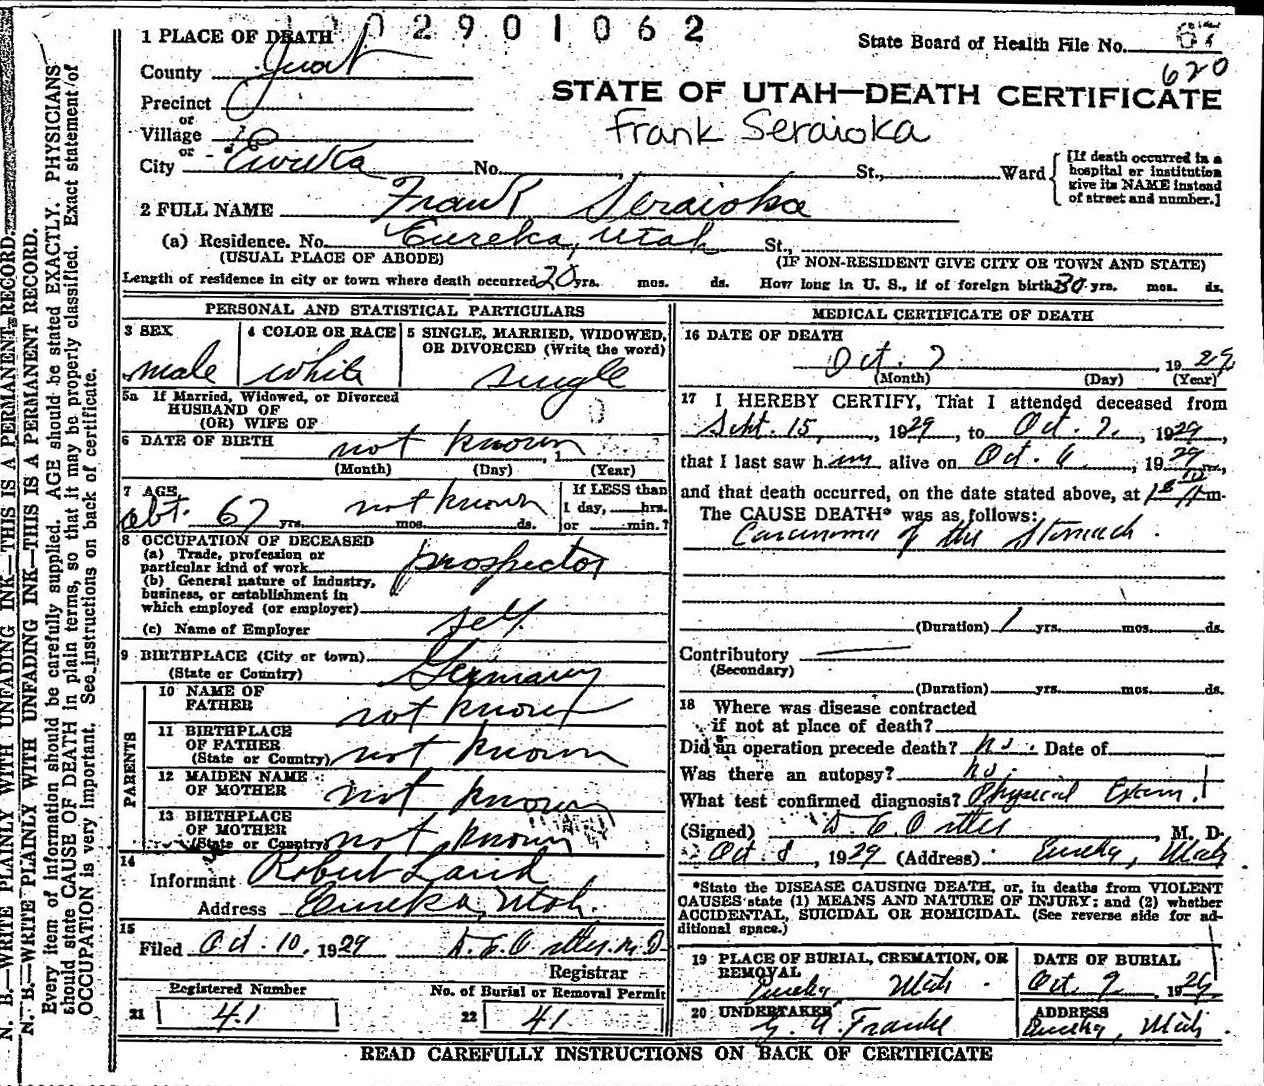 002901062
State Board of Health File No.
620
STATE OF UTAH—DEATH CERTIFICATE
Frank Seraioka
1 PLACE OF DEATH
County Juab
Precinct
or
Village
or
City Eureka No. St., Ward
[If death occurred in a
hospital or institution
give its NAME instead
of street and number.]
2 FULL NAME Frank Seraioka
(a) Residence. No. Eureka, Utah St.,
(USUAL PLACE OF ABODE) (IF NON-RESIDENT GIVE CITY OR TOWN AND STATE)
Length of residence in city or town where death occurred 20 yrs. mos. ds. How long in U. S., if of foreign birth 30 yrs. mos. ds.
PERSONAL AND STATISTICAL PARTICULARS
3 SEX
male
4 COLOR OR RACE
white
5 SINGLE, MARRIED, WIDOWED,
OR DIVORCED (Write the word)
single
5a If Married, Widowed, or Divorced
HUSBAND OF
(OR) WIFE OF
6 DATE OF BIRTH not known
(Month) (Day) (Year)
7 AGE
abt. 67 yrs. not known mos. ds.
If LESS than
1 day, hrs.
or min.?
8 OCCUPATION OF DECEASED
(a) Trade, profession or
particular kind of work prospector
(b) General nature of industry,
business, or establishment in
which employed (or employer) self
(c) Name of Employer
9 BIRTHPLACE (City or town)
(State or Country) Germany
PARENTS
10 NAME OF
FATHER not known
11 BIRTHPLACE
OF FATHER
(State or Country) not known
12 MAIDEN NAME
OF MOTHER not known
13 BIRTHPLACE
OF MOTHER
(State or Country) not known
14
Informant Robert Laird
Address Eureka, Utah.
15
Filed Oct. 10, 1929
Registrar
Registered Number
21 41
No. of Burial or Removal Permit
22 41
MEDICAL CERTIFICATE OF DEATH
16 DATE OF DEATH
Oct. 7, 1929
(Month) (Day) (Year)
17 I HEREBY CERTIFY, That I attended deceased from
Sept. 15, 1929, to Oct. 7, 1929,
that I last saw him alive on Oct. 6, 1929,
and that death occurred, on the date stated above, at m.
The CAUSE DEATH* was as follows:
Carcinoma of the Stomach.
(Duration) 1 yrs. mos. ds.
Contributory
(Secondary)
(Duration) yrs. mos. ds.
18 Where was disease contracted
if not at place of death?
Did an operation precede death? no. Date of
Was there an autopsy? no.
What test confirmed diagnosis? Physical Exam.
(Signed) M. D.
Oct 8, 1929 (Address) Eureka, Utah
*State the DISEASE CAUSING DEATH, or, in deaths from VIOLENT
CAUSES state (1) MEANS AND NATURE OF INJURY; and (2) whether
ACCIDENTAL, SUICIDAL OR HOMICIDAL. (See reverse side for ad-
ditional space.)
19 PLACE OF BURIAL, CREMATION, OR
REMOVAL
Eureka Utah.
DATE OF BURIAL
Oct. 9, 1929
20 UNDERTAKER
ADDRESS
Eureka, Utah.
READ CAREFULLY INSTRUCTIONS ON BACK OF CERTIFICATE
N. B.—WRITE PLAINLY WITH UNFADING INK—THIS IS A PERMANENT RECORD.
N. B.—WRITE PLAINLY WITH UNFADING INK—THIS IS A PERMANENT RECORD.
Every item of information should be carefully supplied. AGE should be stated EXACTLY. PHYSICIANS
should state CAUSE OF DEATH in plain terms, so that it may be properly classified. Exact statement of
OCCUPATION is very important. See instructions on back of certificate.